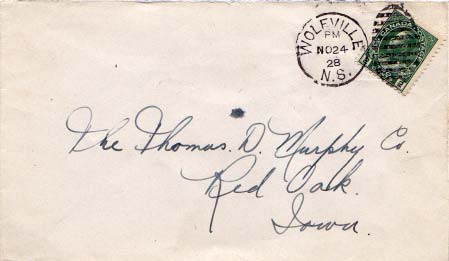 WOLFVILLE
PM
NO 24
28
N.S.
CANADA POSTAGE
The Thomas. D. Murphy Co.
Red Oak.
Iowa.